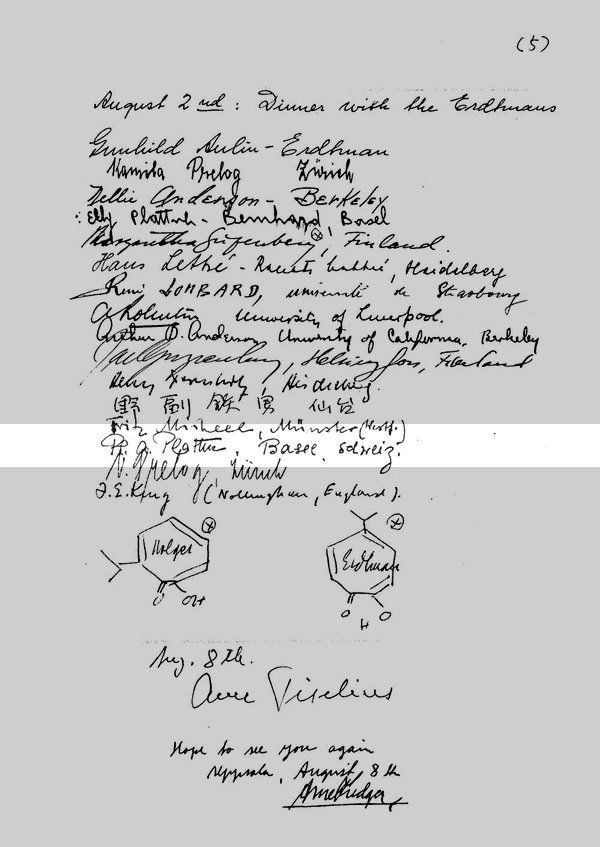 (5)
August 2nd : Dinner with the Erdtmans
Gunhild Aulin - Erdtman
Kamila Prelog Zürich
Nellie Anderson - Berkeley
Elly Plattner - Bernhard, Basel
Margaretha Gripenberg, Finland.
Hans Lettré - Renate Lettré, Heidelberg
René LOMBARD, université de Strasbourg
University of Liverpool.
Arthur G. Anderson University of California, Berkeley
Gripenberg, Helsingfors, Finland
Heidelberg
野副 鉄男 仙台
Fritz Micheel, Münster (Westf.)
Pl. A. Plattner, Basel, Schweiz.
V. Prelog, Zürich
F. E. King (Nottingham, England).
Holger
O OH
Erdtman
O O
H
Aug. 8th.
Arne Tiselius
Hope to see you again
Uppsala, August 8th
Arne Fredga